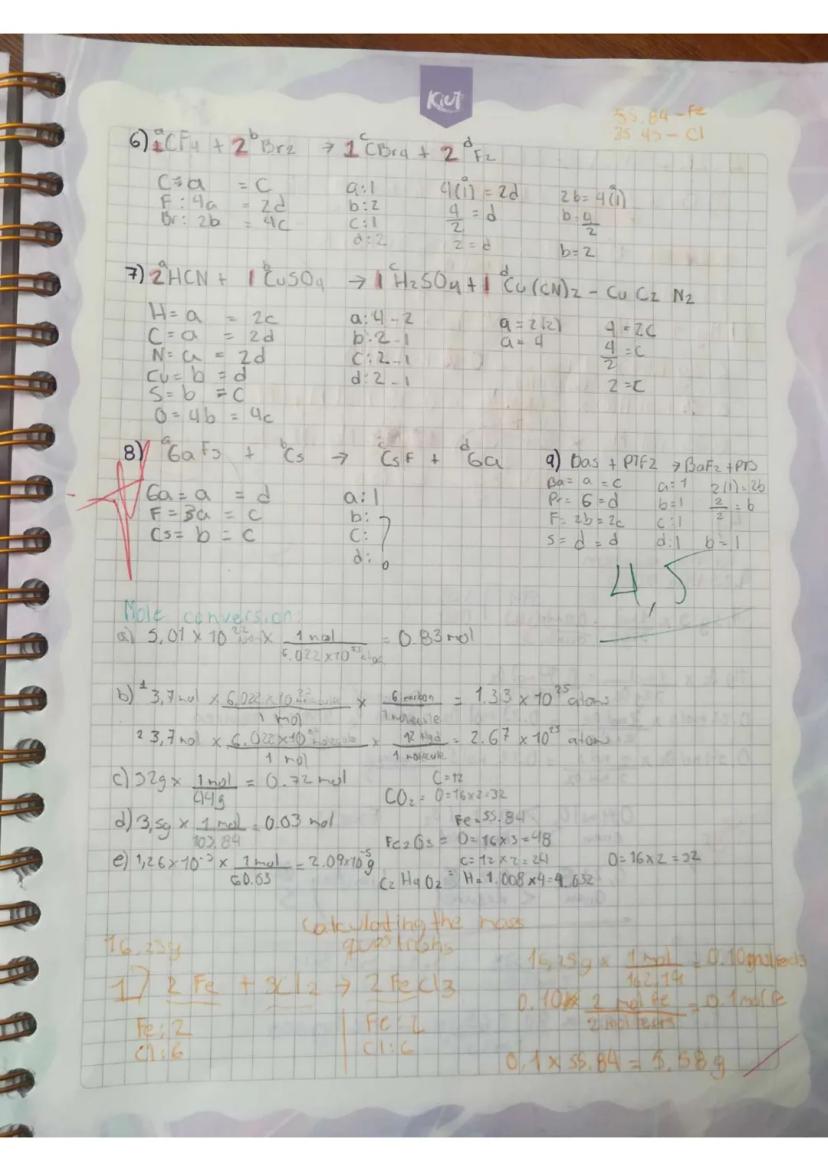 Kiut
55.84 - Fe
35.45 - Cl
6) 1CF4 + 2 Br2 → 1 CBr4 + 2 F2
a b c d
C = a = C
F: 4a = 2d
Br: 2b = 4c
a: 1
b: 2
c: 1
d: 2
4(1) = 2d
4/2 = d
2 = d
2b = 4(1)
b = 4/2
b = 2
7) 2HCN + 1 CuSO4 → 1 H2SO4 + 1 Cu(CN)2 - Cu C2 N2
a b c d
H = a = 2c
C = a = 2d
N = a = 2d
Cu = b = d
S = b = c
O = 4b = 4c
a: 4 - 2
b: 2 - 1
c: 2 - 1
d: 2 - 1
a = 2(2)
a = 4
4 = 2c
4/2 = c
2 = c
8) GaF3 + Cs → CsF + Ga
a b c d
Ga = a = d
F = 3a = c
Cs = b = c
a: 1
b:
c: ?
d:
9) BaS + PtF2 → BaF2 + PtS
Ba = a = c
Pt = 6 = d
F = 2b = 2c
S = d = d
a: 1
b = 1
c: 1
d: 1
2(1) = 2b
2/2 = b
b = 1
4,5
Mole conversion:
a) 5,01 × 10 × 1 mol / 6.022 × 10 = 0.83 mol
b) 1 3,7 mol × 6.022 × 10 / 1 mol × 6 carbon / 1 molecule = 1.33 × 10^25 atoms
2 3,7 mol × 6.022 × 10 / 1 mol × 12 / 1 molecule = 2.67 × 10 atoms
c) 32g × 1 mol / 44g = 0.72 mol
C = 12
CO2 = O = 16 × 2 = 32
d) 3,5g × 1 mol / 103.84 = 0.03 mol
Fe = 55.84
Fe2O3 = O = 16 × 3 = 48
e) 1,26 × 10^-3 × 1 mol / 60.03 = 2.09 × 10^-5 g
C = 12 × 2 = 24
O = 16 × 2 = 32
C2H4O2 = H = 1.008 × 4 = 4.032
Calculating the mass
questions
16.25g
1) 2 Fe + 3Cl2 → 2 FeCl3
Fe: 2
Cl: 6
Fe: 2
Cl: 6
16,25g × 1 mol / = 0.10
0.10 × 2 mol Fe / 2 mol = 0.1 mol Fe
0.1 × 55.84 = 5.58g